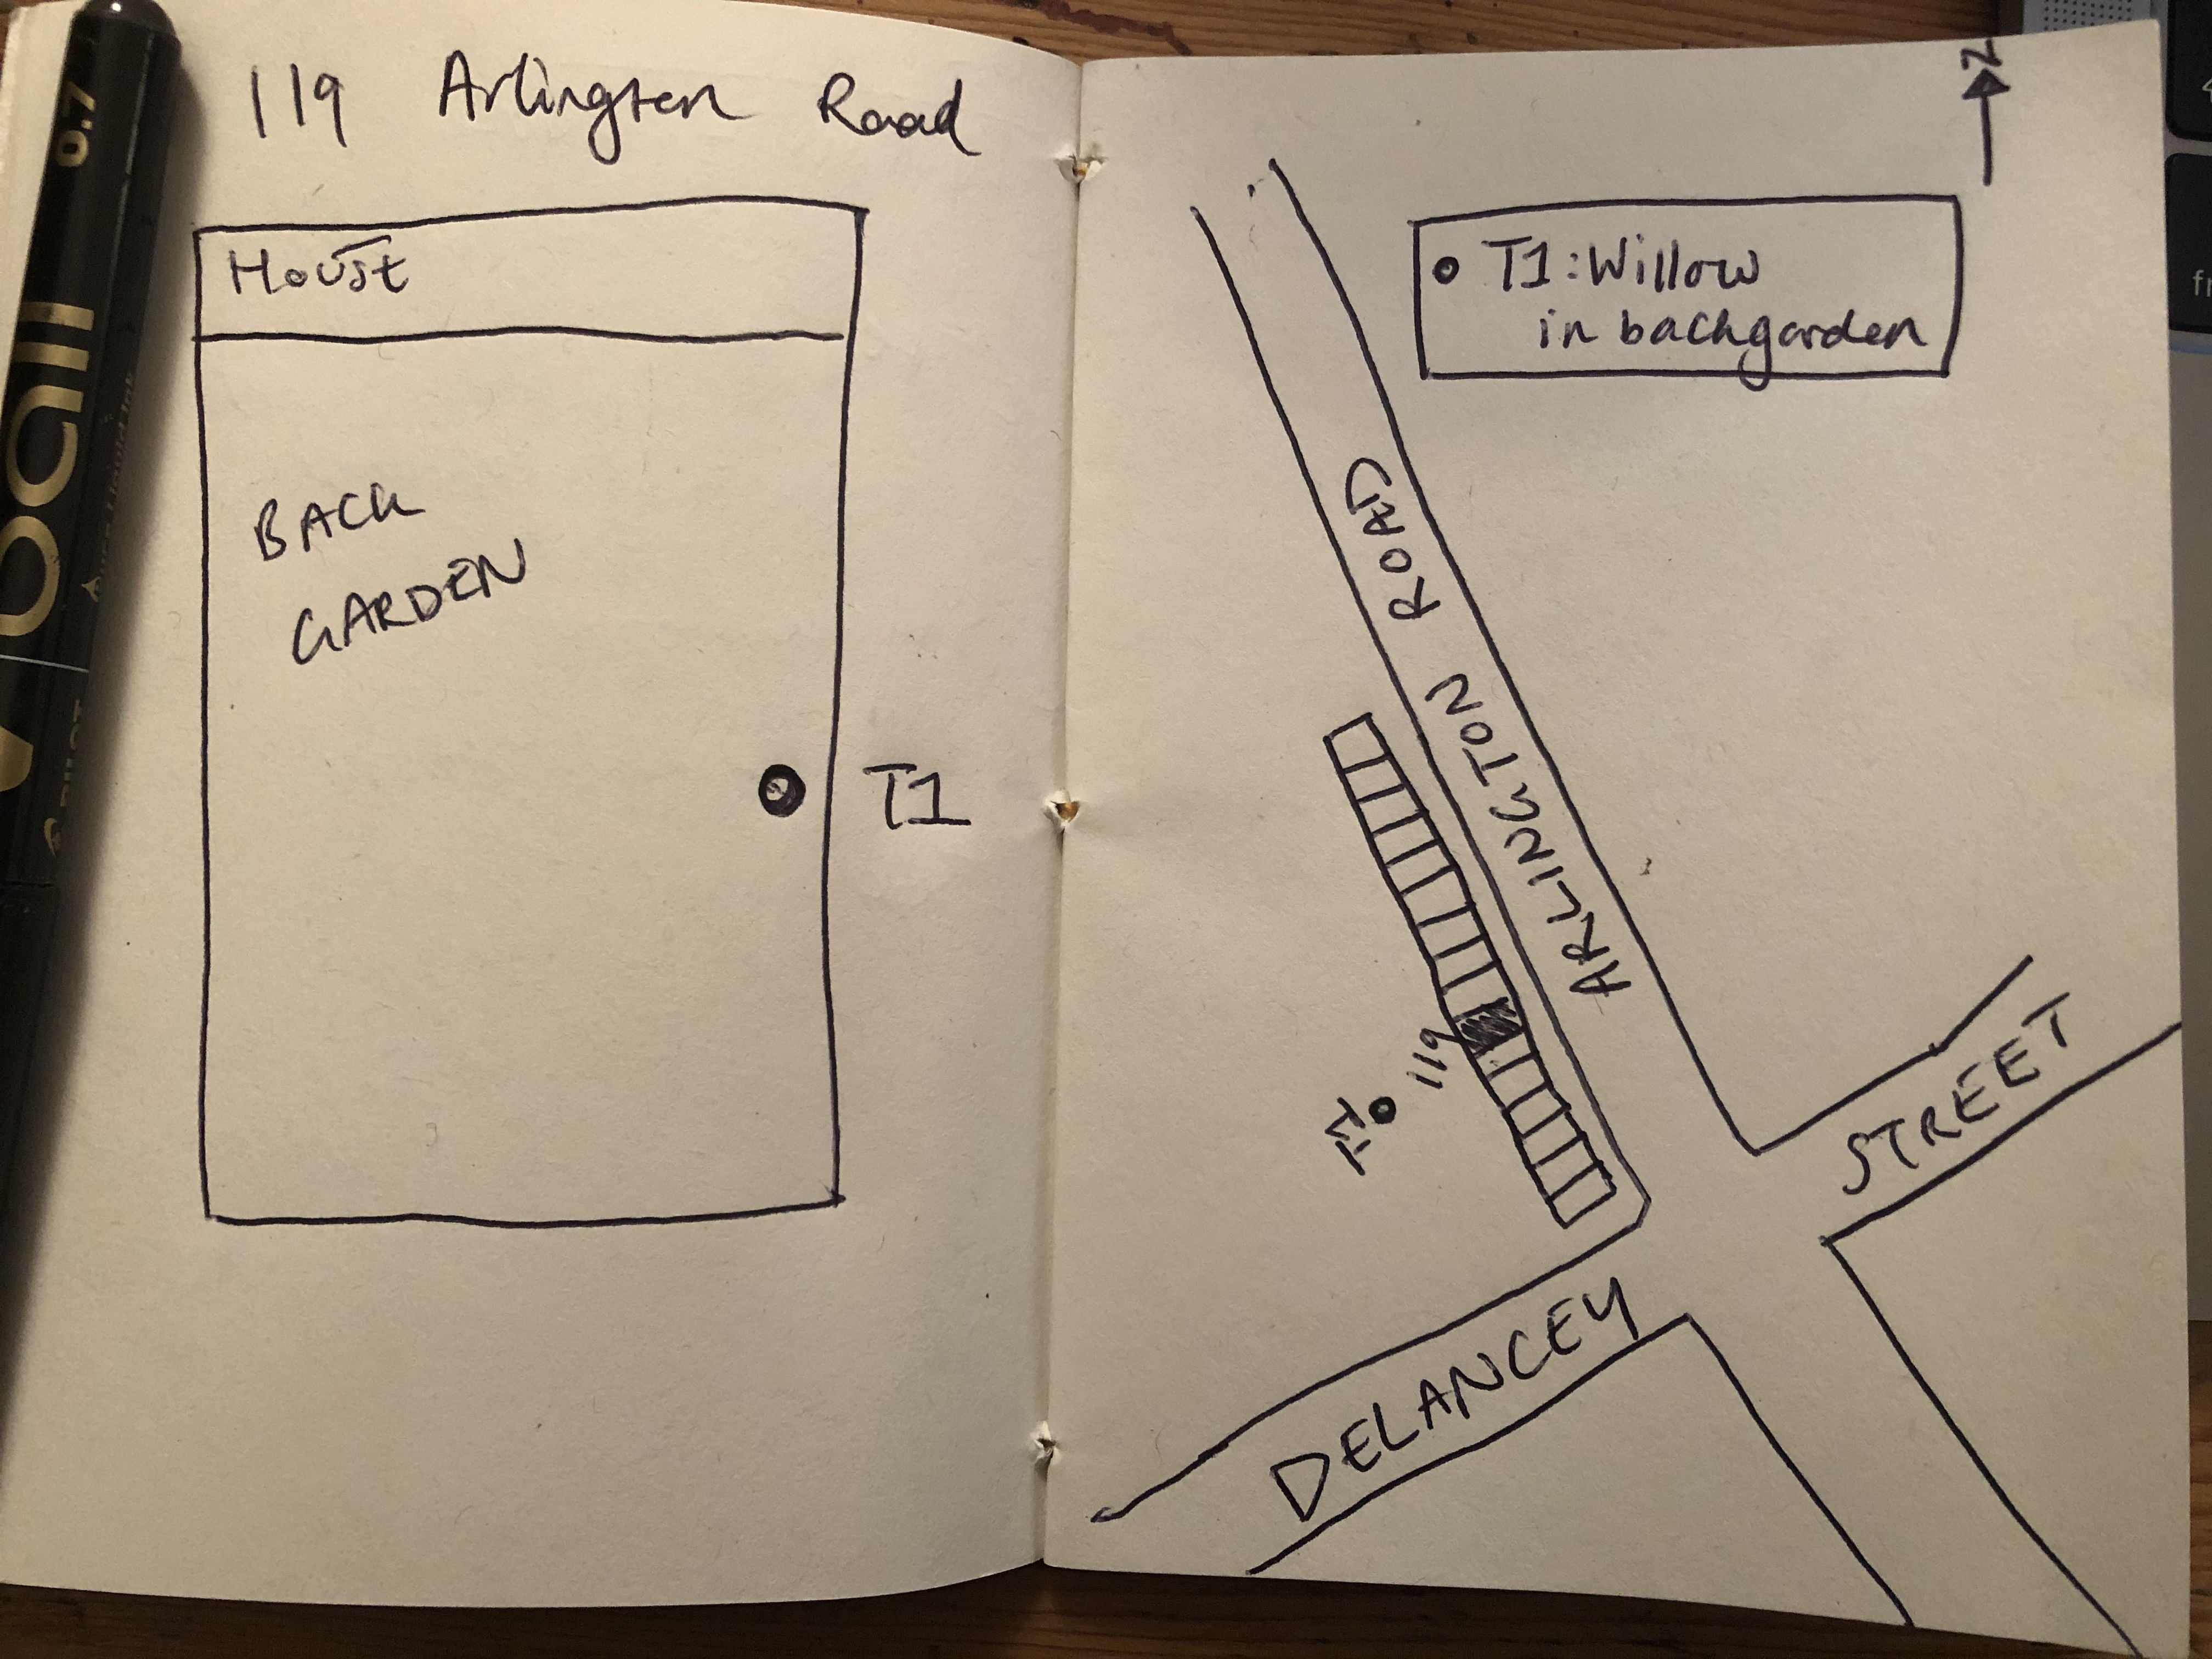 119 Arlington Road
House
BACK
GARDEN
T1
N
T1: Willow
in backgarden
ARLINGTON ROAD
119
T1
DELANCEY STREET
ball
0.7
PILOT